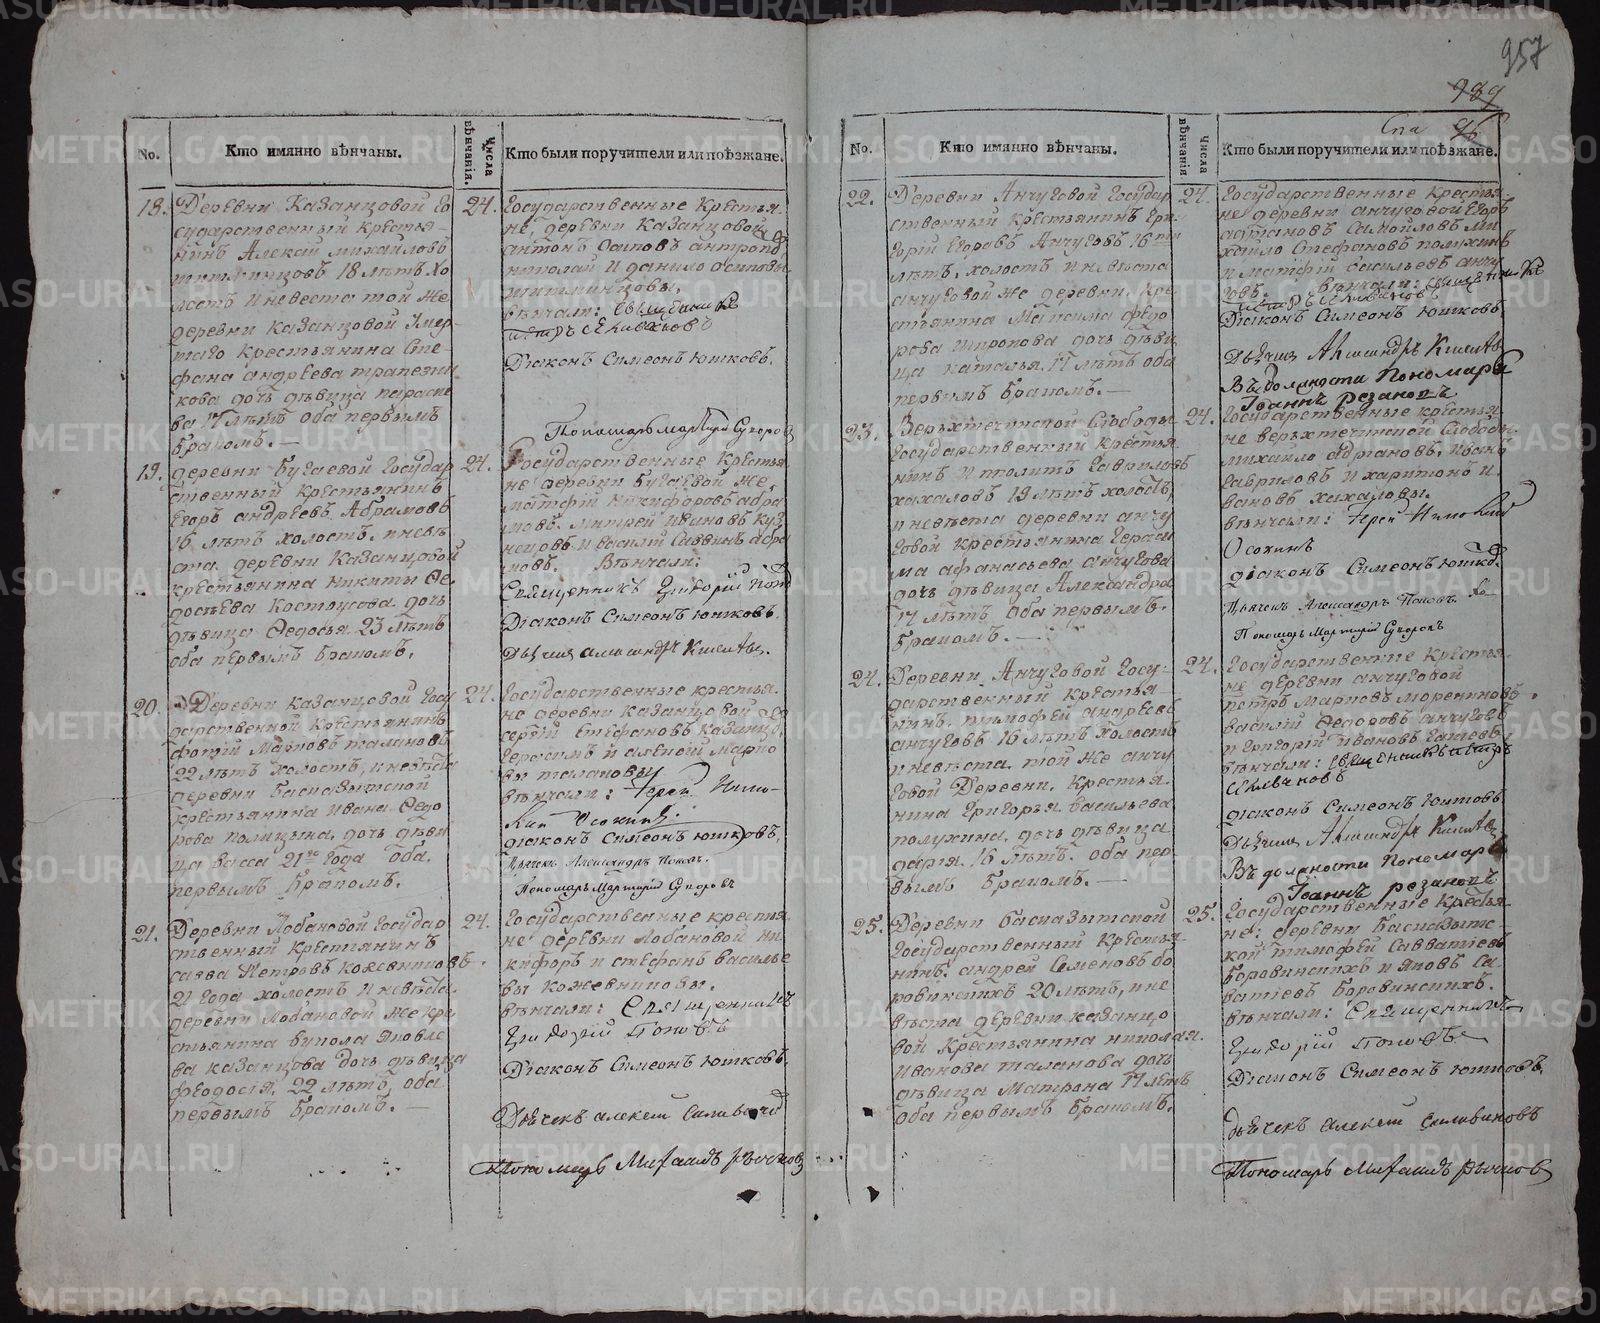 957
989
96
No.
Кто имянно вѣнчаны.
Числа вѣнчанія.
Кто были поручители или поѣзжане.
18.
Деревни Казанцовой Го
сударственный крестья-
нинъ Алексѣй михайловъ
18 лѣтъ хо
лостъ и невеста той же
деревни казанцовой умер
таго крестьянина Сте
фана андреева
дочь дѣвица параске
ва 17 лѣтъ оба первымъ
бракомъ.—
24.
Государственные крестья-
не, деревни казанцовой
антонъ
николай и данило осиповы
вѣнчали:
петръ селивановъ
Діаконъ Симеонъ Ютковъ.
Пономарь
19.
деревни бугаевой государ
ственный крестьянинъ
Егоръ андреевъ Абрамовъ
16 лѣтъ холостъ, и невѣ
ста деревни казанцовой
крестьянина никиты Ѳе
досѣева Костоусова дочь
дѣвица Ѳедосья 23 лѣтъ
оба первымъ бракомъ.
24.
Государственные крестья
не деревни бугаевой же
матфій никифоровъ абра
мовъ. митрей ивановъ куз
нецовъ и василій саввинъ абра
мовъ. Вѣнчали:
Священникъ Григорій Попо
Діаконъ Симеонъ Ютковъ.
Дьячекъ александръ Киселевъ.
20.
Деревни казанцовой Госу
дарственной крестьянинъ
фотій Марковъ талановъ
22 лѣтъ холостъ, и невѣста
деревни басказытской
крестьянина ивана Ѳедо
рова дочь дѣви
ца васса 21го года оба
первымъ бракомъ.
24.
Государственные крестья.
не деревни казанцовой
сергій стефановъ казанцо
герасимъ и алексѣй марко
вы талановы
вѣнчали: Іерей Нико-
лай Осокинъ.
діаконъ Симеонъ Ютковъ.
Дьячекъ Александръ Поповъ.
Пономарь Мартирій Сухоровъ
21.
Деревни Лобановой государ
ственный крестьянинъ
савва Петровъ кожевниковъ.
21 года холостъ и невѣста
деревни Лобановой же кре
стьянина вукола яковле
ва казанцова дочь дѣвица
феодосія, 22 лѣтъ, оба
первымъ бракомъ.—
24.
Государственные крестья
не деревни лобановой ни
кифоръ и стефанъ василье
вы кожевниковы.
вѣнчали: Священникъ
Григорій Поповъ
Діаконъ Симеонъ Ютковъ.
Дьячекъ алексѣй
Пономарь Михаилъ Рычковъ
No.
Кто имянно вѣнчаны.
Числа вѣнчанія
Кто были поручители или поѣзжане.
22.
Деревни Анчуговой государ
ственный крестьянинъ гри-
горій Егоровъ Анчуговъ 16ти
лѣтъ, холостъ и невѣста
анчуговой же деревни, кре
стянина Максима Ѳедо
рова широкова дочь дѣви
ца наталья 17 лѣтъ оба
первымъ бракомъ.—
24.
Государственные крестья-
не деревни анчуговой Егоръ
самойловъ ми
хайло Стефановъ полухинъ
и матфій васильевъ анчу
говъ. вѣнчали: Священникъ
петръ селивановъ
Діаконъ Симеонъ Ютковъ.
Дьячекъ Александръ Киселевъ
Въ должности Пономаря
Іоаннъ резановъ
23.
Верьхтечинской слободы
Государственный крестья
нинъ ипполитъ гавриловъ
хахаловъ 19 лѣтъ холостъ,
и невѣста деревни анчу
говой крестьянина гераси
ма афанасьева анчугова
дочь дѣвица Александра
17 лѣтъ оба первымъ
бракомъ.—
24.
Государственные крестья
не верьхтечинской слободы
михаило адріановъ, иванъ
гавриловъ и харитонъ и
вановъ хахаловы.
вѣнчали: Іерей Николай
Осокинъ
діаконъ Симеонъ Ютко.
Дьячекъ Александръ Поповъ
Пономарь Мартирій Сухоровъ
24.
Деревни Анчуговой госу-
дарственный крестья
нинъ, тимофей андреевъ
анчуговъ 16 лѣтъ холостъ
и невѣста той же анчу
говой деревни, крестья
нина григорья васильева
полухина, дочь дѣвица
дарія 16 лѣтъ. оба пер
вымъ бракомъ.—
24.
Государственные крестья.
не деревни анчуговой
петръ марковъ
василій Ѳедоровъ анчуговъ
и григорій ивановъ
вѣнчали: Священникъ петръ
селивановъ
діаконъ Симеонъ Ютковъ
Дьячекъ Александръ Киселевъ
Въ должности Пономаря
Іоаннъ резановъ
25.
Деревни басказытской
государственный крестья-
нинъ: андрей Семеновъ бо
ровинскихъ 20 лѣтъ, и не
вѣста деревни казанцо
вой крестьянина николая
иванова таланова дочь
дѣвица Матрона 17 лѣтъ
оба первымъ бракомъ.
25.
Государственные крестья-
не: деревни басказытс-
кой тимофей Савватіевъ
боровинскихъ и яковъ са-
ватіевъ боровинскихъ.
вѣнчали: Священникъ
Григорій Поповъ
Діаконъ Симеонъ Ютковъ.
Дьячекъ алексѣй
Пономарь Михаилъ Рычковъ
METRIKI.GASO-URAL.RU